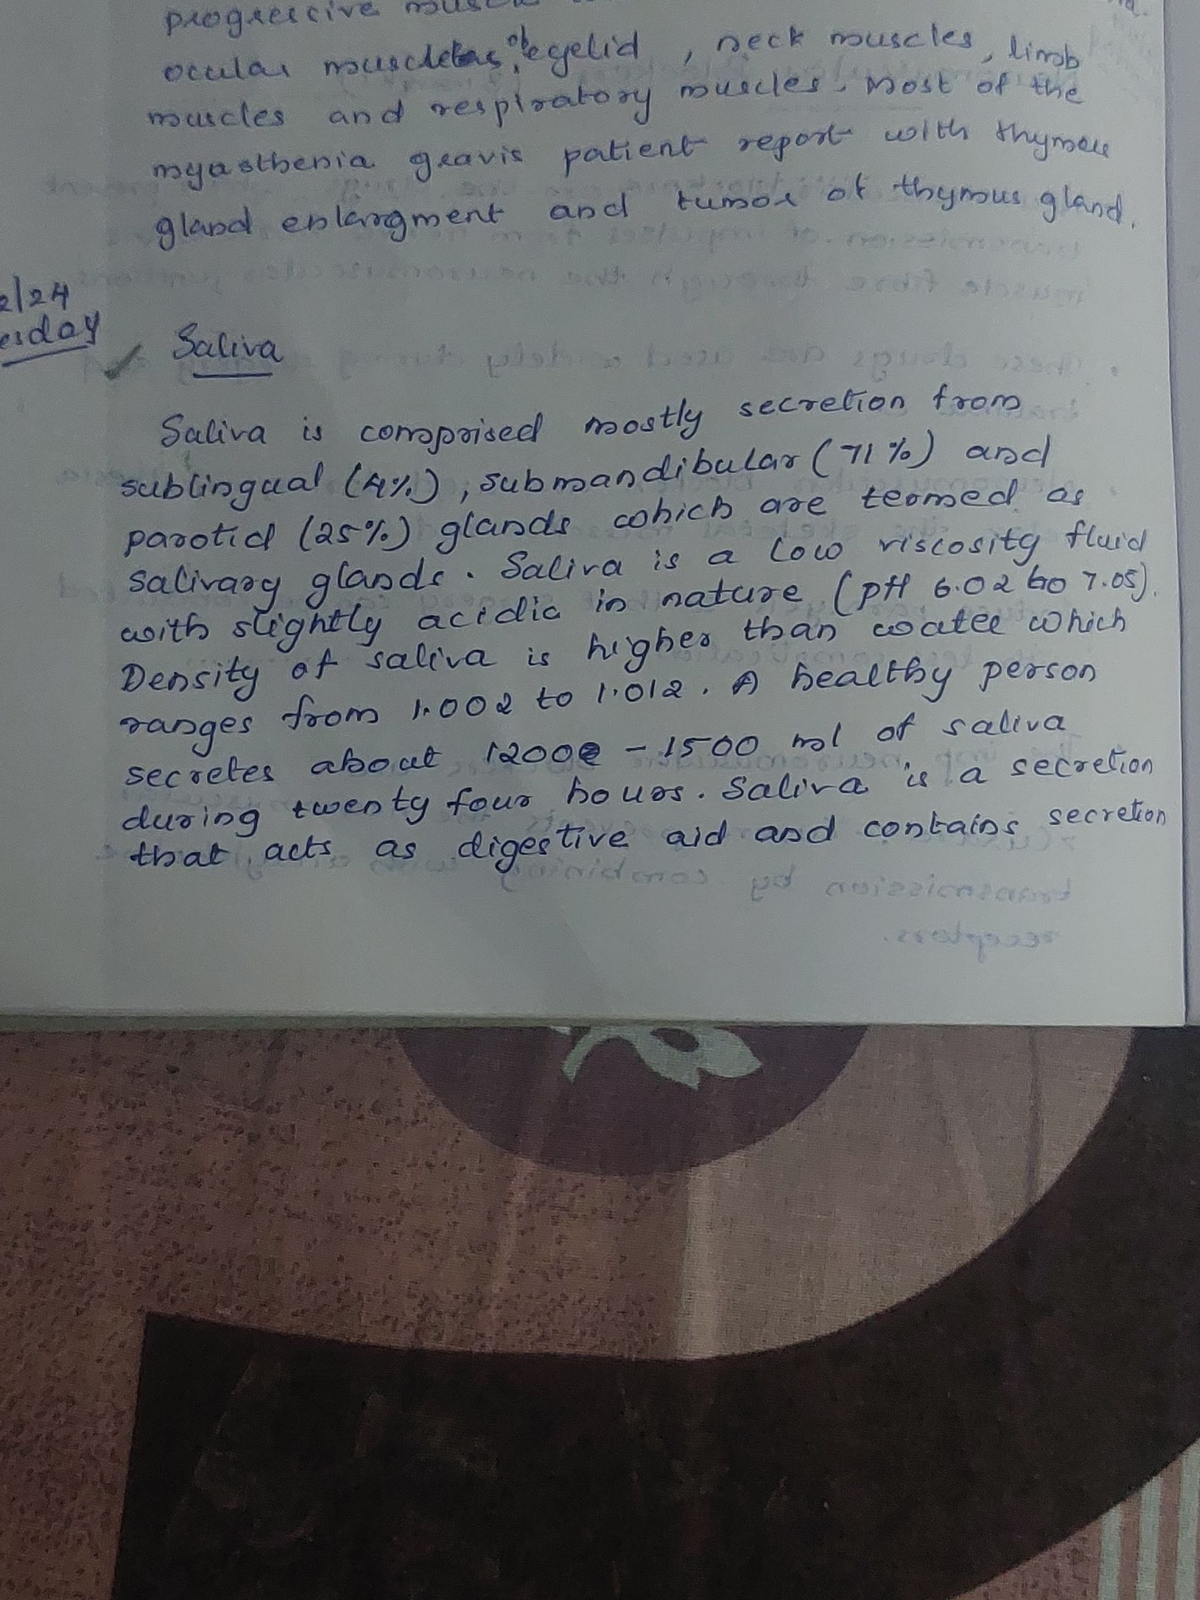 progressive
ocular muscles, of eyelid, neck muscles, limb
muscles and respiratory muscles. Most of the
myasthenia gravis patient report with thymus
gland enlargment and tumor of thymus gland.
2/24
esday
Saliva
Saliva is comprised mostly secretion from
sublingual (4%), submandibular (71%) and
parotid (25%) glands which are termed as
salivary glands. Saliva is a low viscosity fluid
with slightly acidic in nature (pH 6.02 to 7.05).
Density of saliva is higher than water which
ranges from 1.002 to 1.012. A healthy person
secretes about 1200 - 1500 ml of saliva
during twenty four hours. Saliva is a secretion
that acts as digestive aid and contains secretion